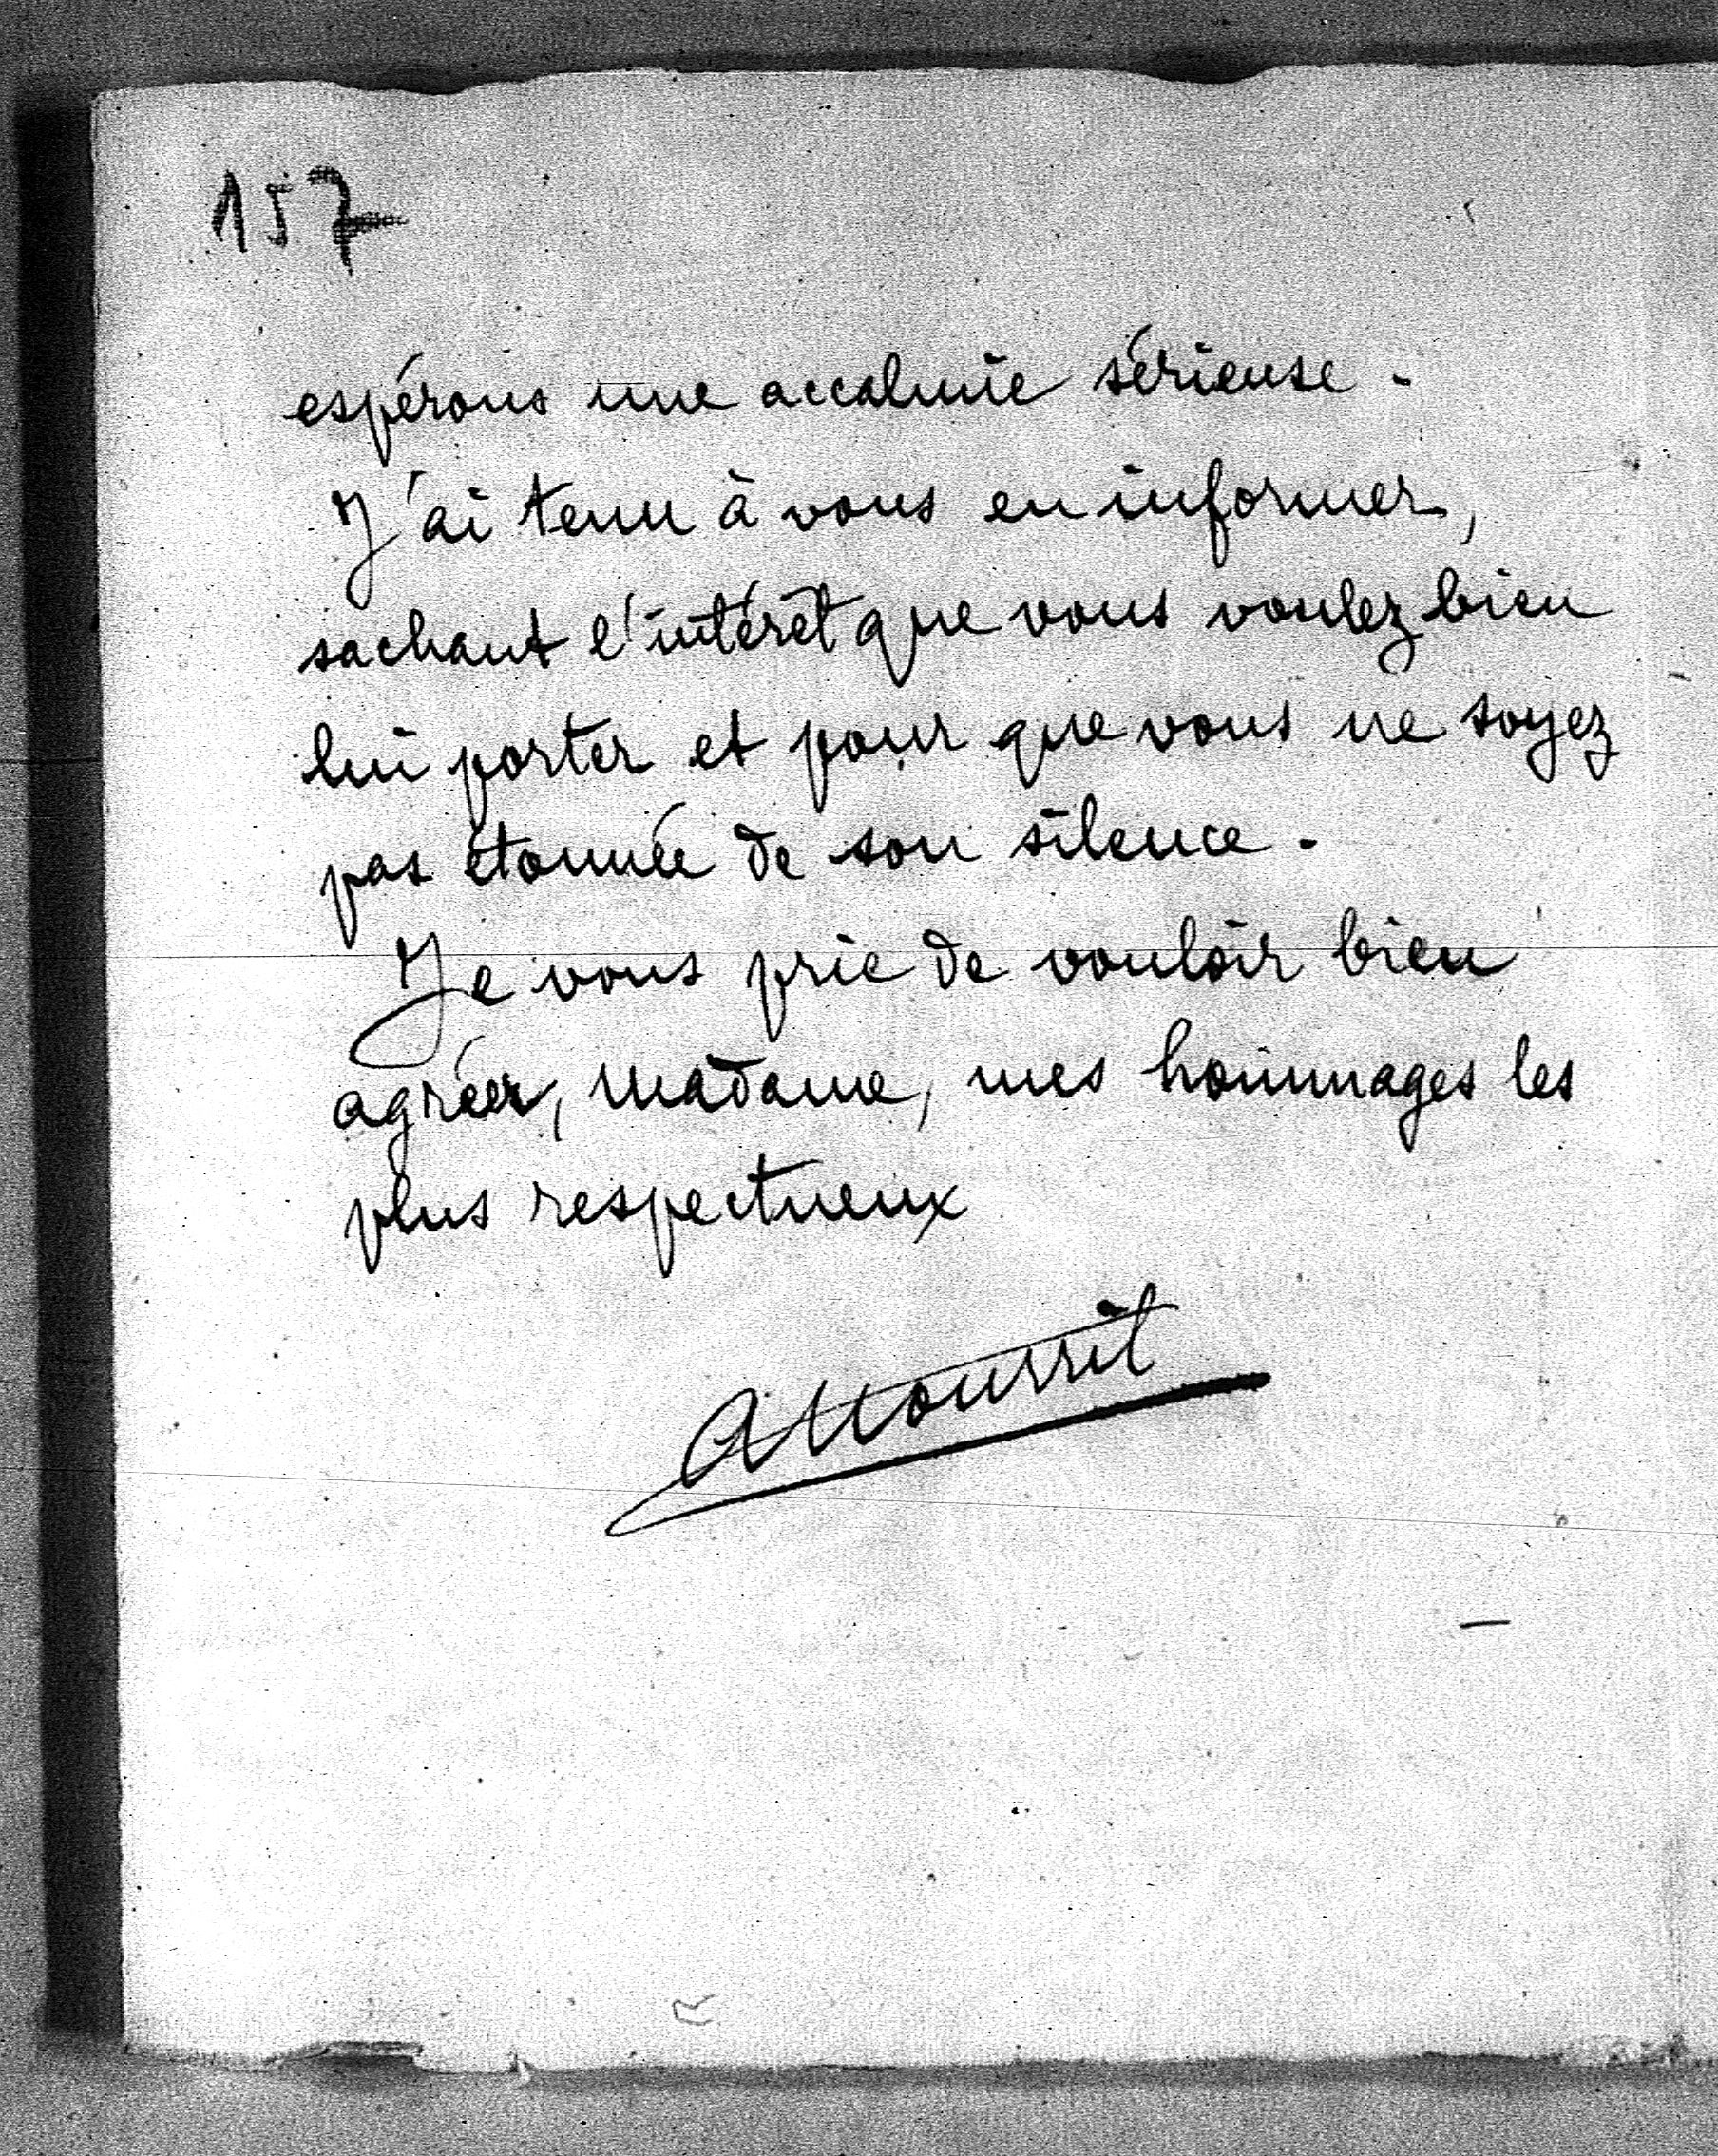 157
espérons une accalmie sérieuse.
J'ai tenu à vous en informer,
sachant l'intérêt que vous voulez bien
lui porter et pour que vous ne soyez
pas étonnée de son silence.
Je vous prie de vouloir bien
agréer, madame, mes hommages les
plus respectueux
A Nourrit